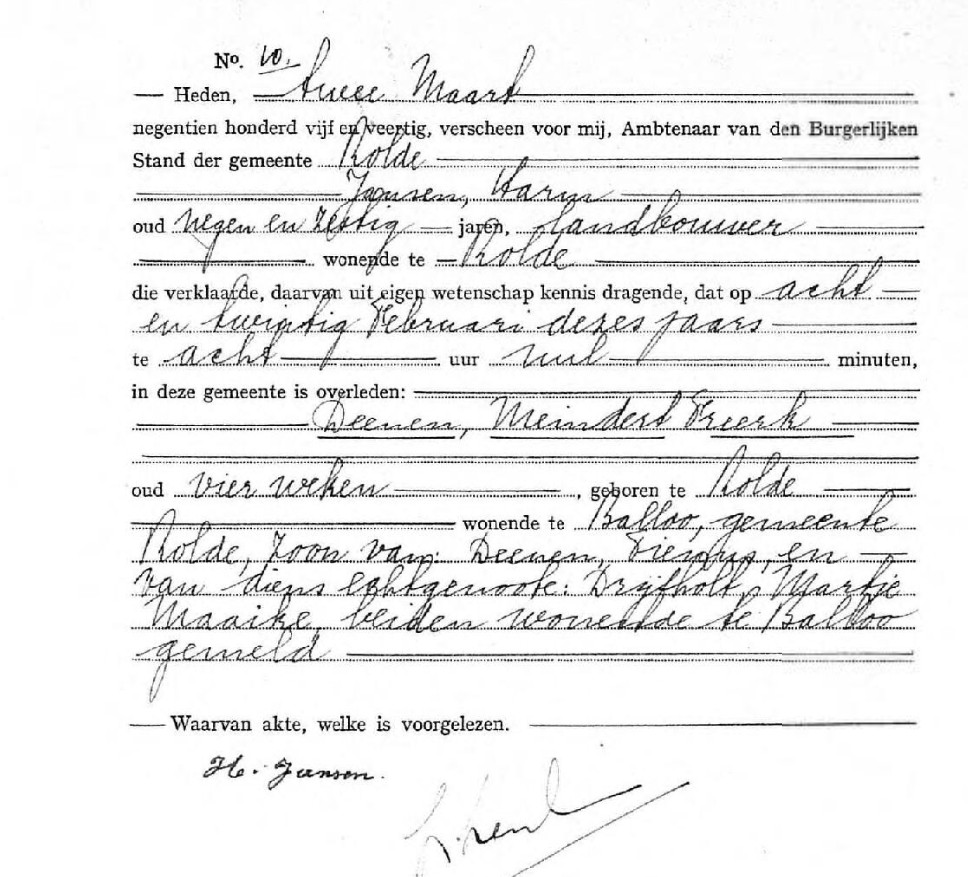 No. 10.
Heden, twee Maart
negentien honderd vijf en veertig, verscheen voor mij, Ambtenaar van den Burgerlijken
Stand der gemeente Rolde
Jansen, Harm
oud negen en zestig jaren, landbouwer
wonende te Rolde
die verklaarde, daarvan uit eigen wetenschap kennis dragende, dat op acht
en twintig Februari dezes jaars
te acht uur nul minuten,
in deze gemeente is overleden:
Deenen, Meindert Freerk
oud vier weken, geboren te Rolde
wonende te Balloo, gemeente
Rolde, zoon van: Deenen, en
van diens echtgenoote: Drijfholt, Martje
Maaike, beiden wonende te Balloo
gemeld
Waarvan akte, welke is voorgelezen.
H. Jansen.